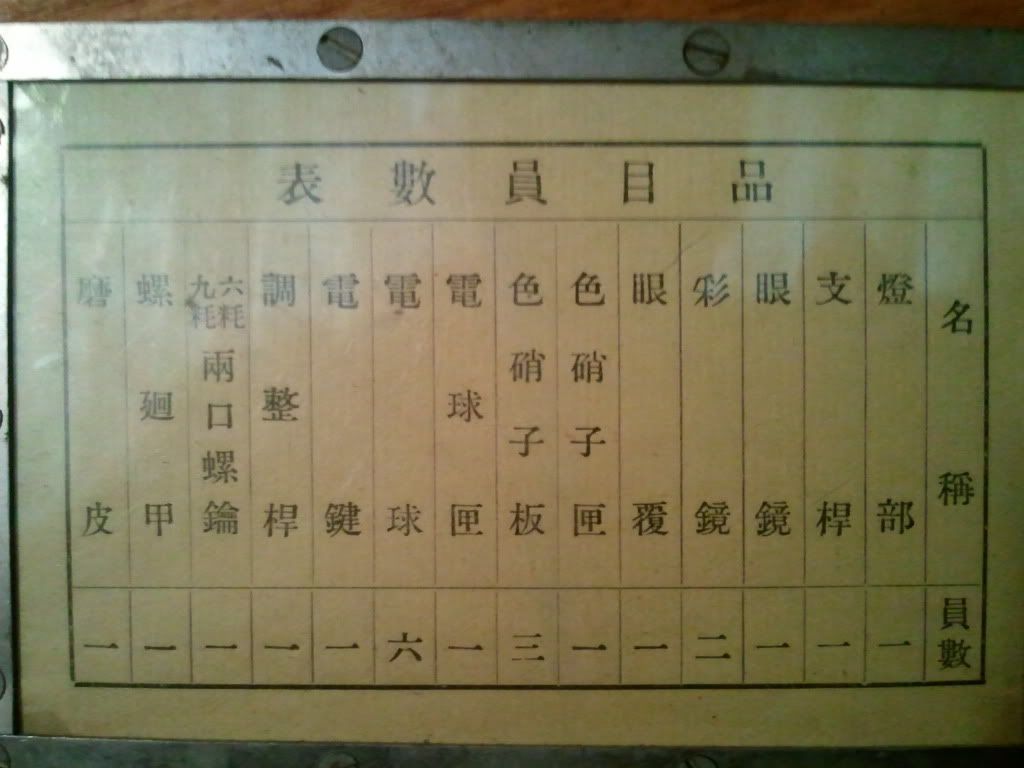 品目員數表
名稱 員數
燈部 一
支桿 一
眼鏡 一
彩鏡 二
眼覆 一
色硝子匣 一
色硝子板 三
電球匣 一
電球 六
電鍵 一
調整桿 一
六粍九粍兩口螺鑰 一
螺廻甲 一
磨皮 一